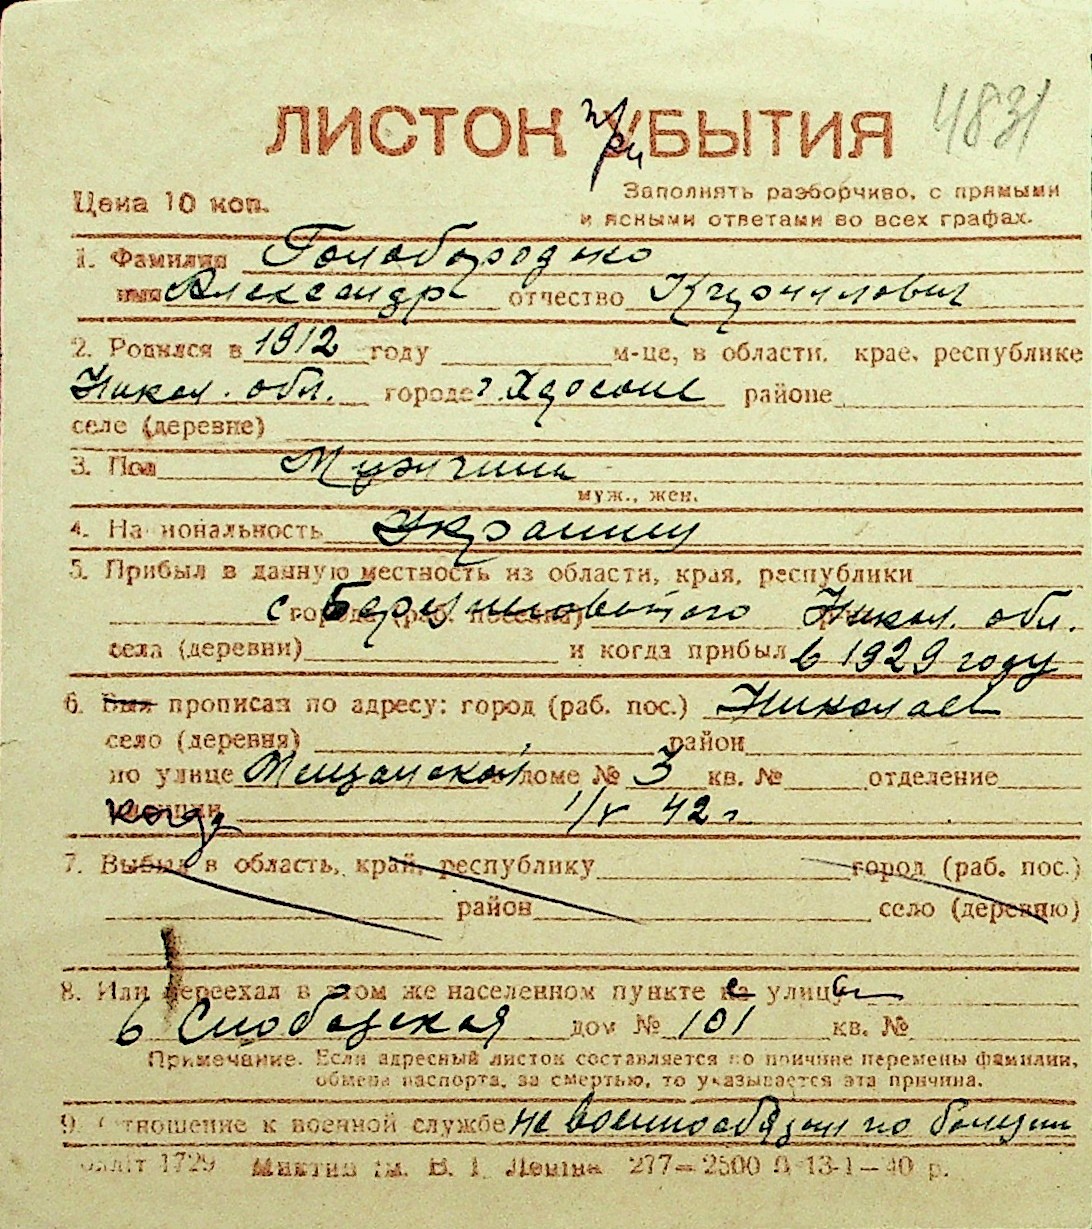 ЛИСТОК при БЫТИЯ 4831
Цена 10 коп.
Заполнять разборчиво, с прямыми
и ясными ответами во всех графах.
1. Фамилия Голобородько
имя Александр отчество Кириллович
2. Родился в 1912 году м-це, в области, крае, республике
Никол. обл. городе г. Херсоне районе
селе (деревне)
3. Пол Мужчина
муж., жен.
4. Национальность Украинец
5. Прибыл в данную местность из области, края, республики
с города (раб. поселка) Березниговатого Никол. обл.
села (деревни) и когда прибыл в 1929 году
6. Был прописан по адресу: город (раб. пос.) Николаев
село (деревня) район
по улице Мещанской доме № 3 кв. № отделение
когда 1/V 42 г
7. Выбыл в область, край, республику город (раб. пос.)
район село (деревню)
8. Или переехал в этом же населенном пункте с улицы
6 Слободская дом № 101 кв. №
Примечание. Если адресный листок составляется по причине перемены фамилии,
обмена паспорта, за смертью, то указывается эта причина.
9. Отношение к военной службе не военнообязан по болезни
обліт 1729 Миктип ім. В. І. Леніна 277—2500 13-1—40 р.